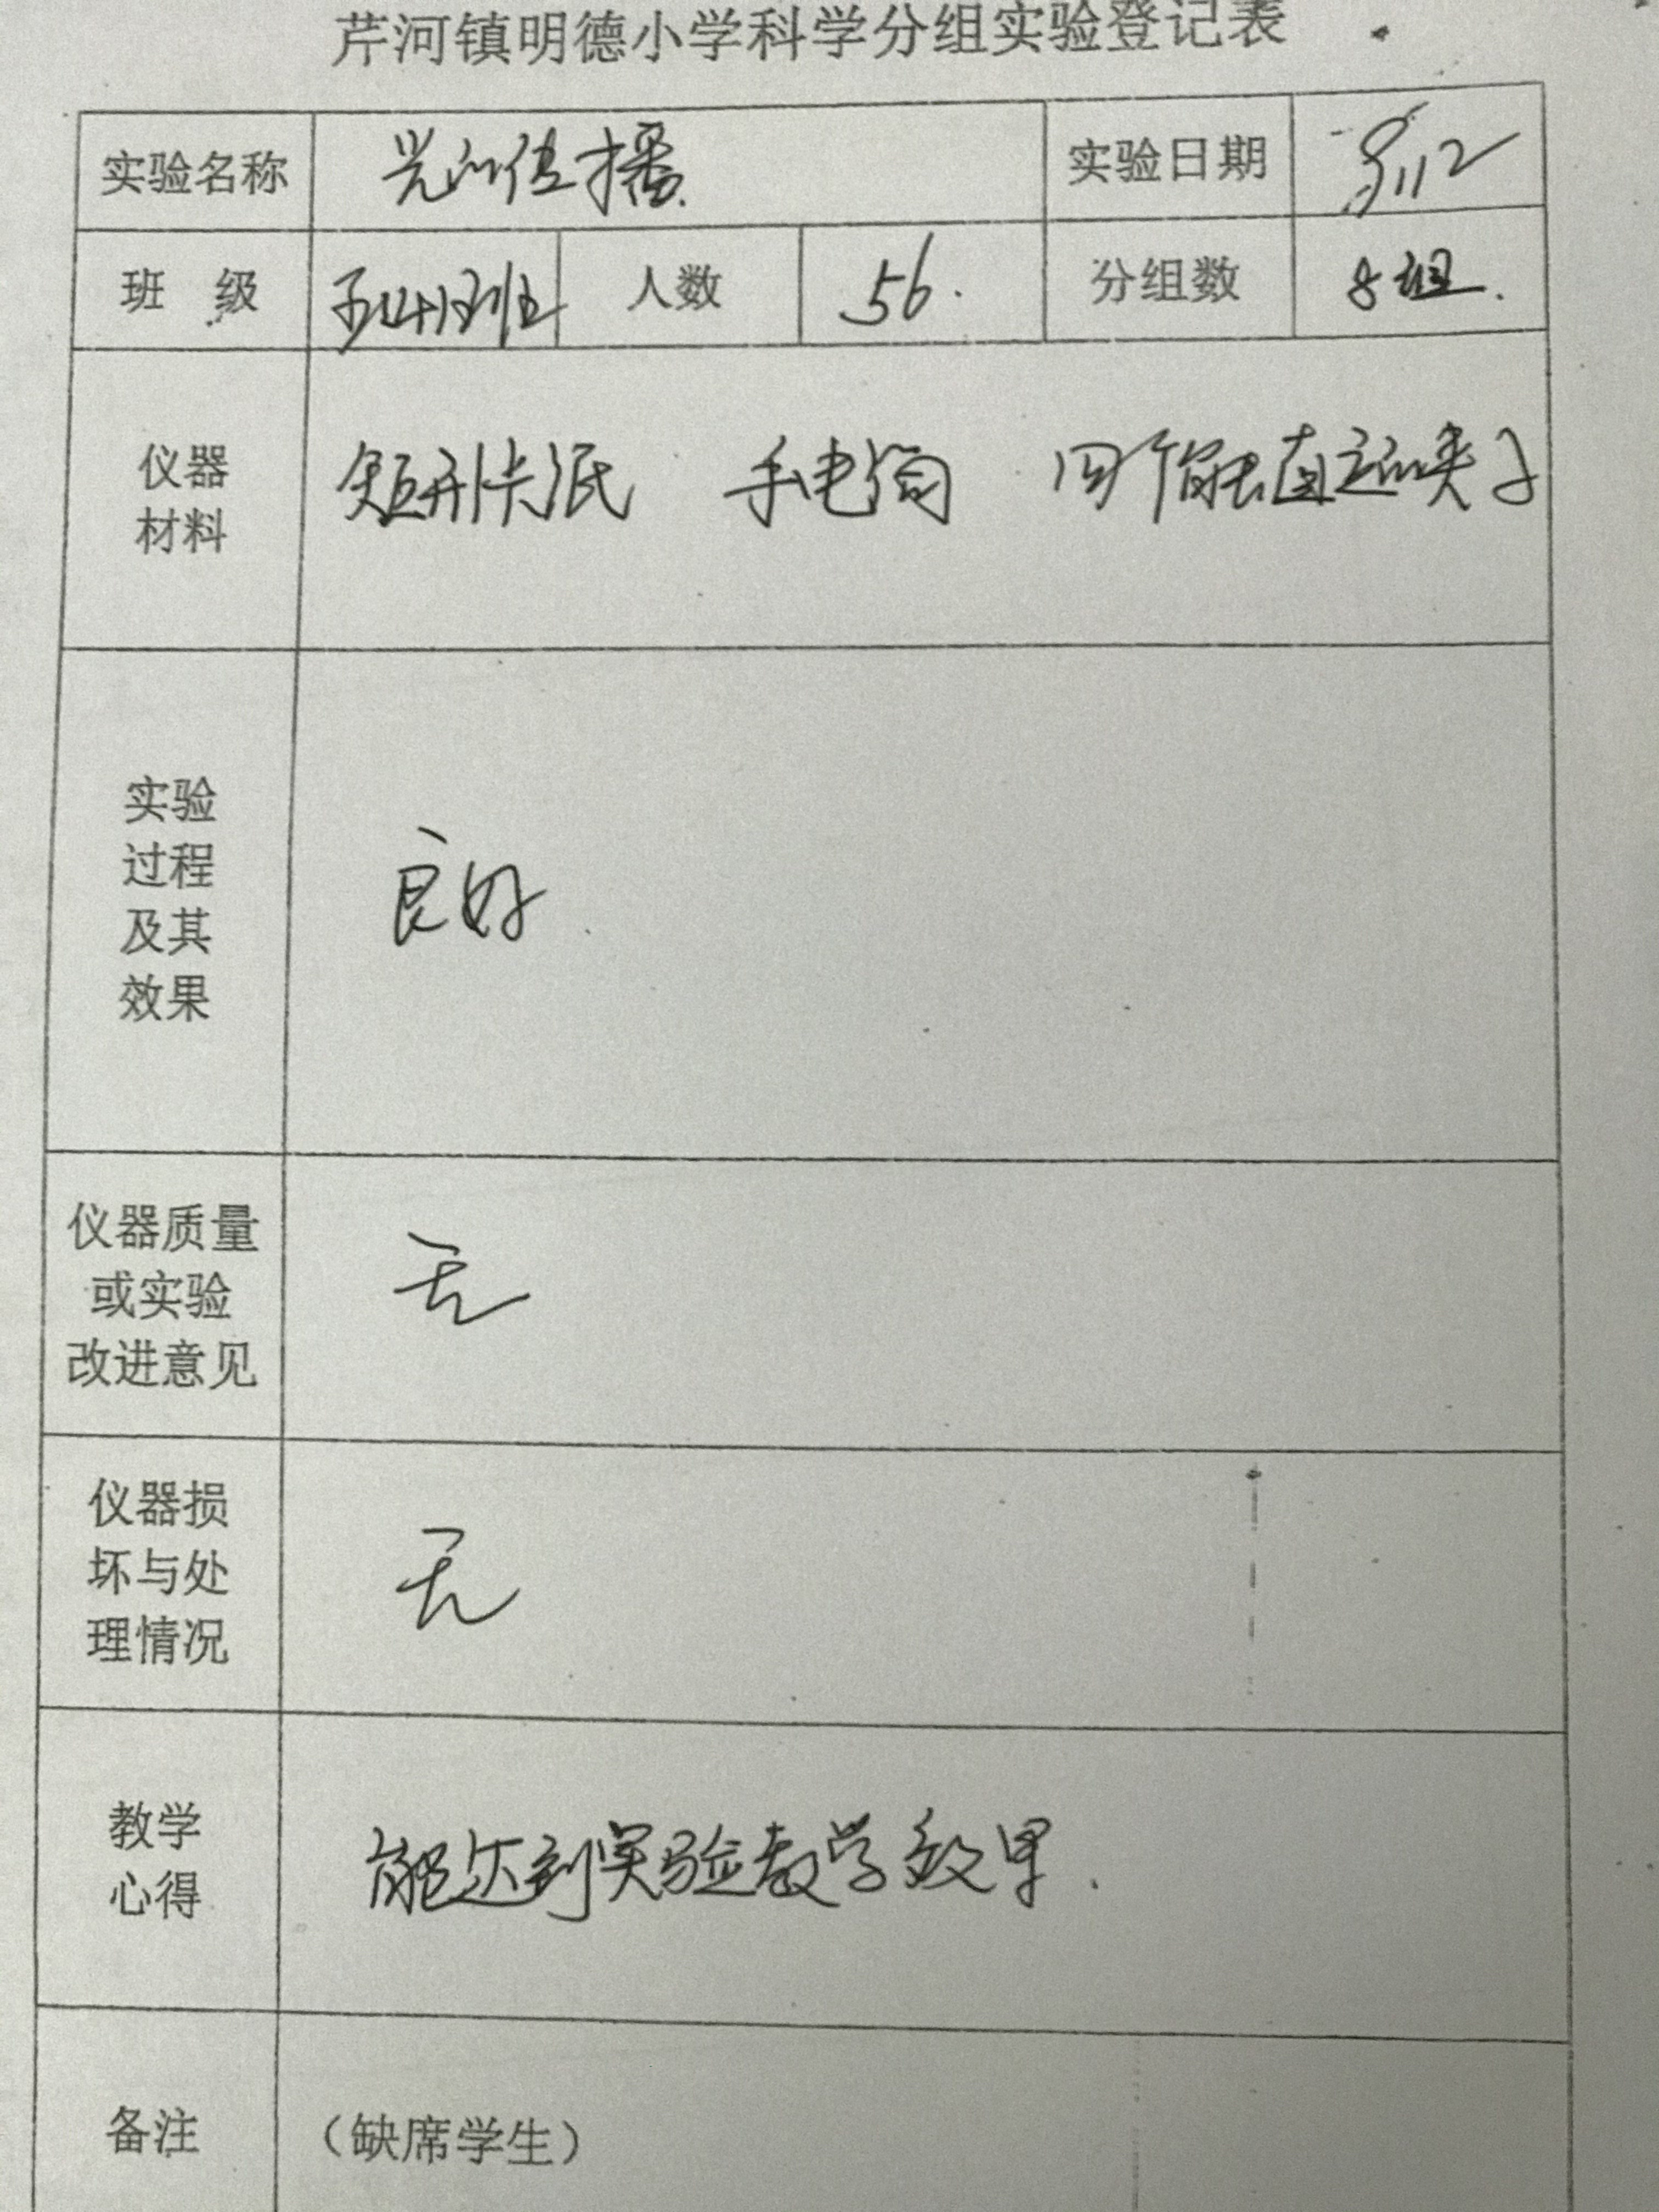 芹河镇明德小学科学分组实验登记表
实验名称 光的传播. 实验日期
班 级 人数 56. 分组数 8组.
仪器
材料
矩形卡纸 手电筒 四个能直立的夹子
实验
过程
及其
效果
良好
仪器质量
或实验
改进意见
无
仪器损
坏与处
理情况
无
教学
心得
能达到实验教学效果.
备注 （缺席学生）